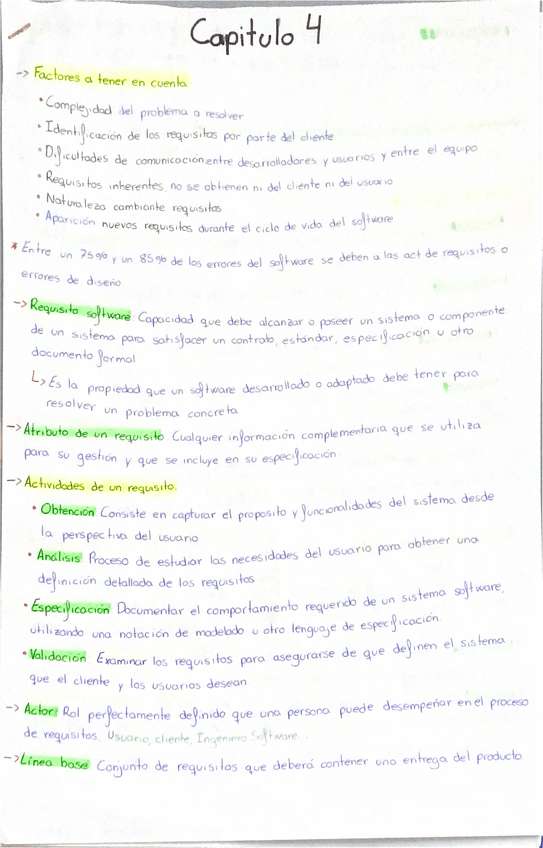 Capitulo 4
-> Factores a tener en cuenta
• Complejidad del problema a resolver
• Identificación de los requisitos por parte del cliente
• Dificultades de comunicación entre desarrolladores y usuarios y entre el equipo
• Requisitos inherentes no se obtienen ni del cliente ni del usuario
• Naturaleza cambiante requisitos
• Aparición nuevos requisitos durante el ciclo de vida del software
* Entre un 75% y un 85% de los errores del software se deben a las act de requisitos o
errores de diseño
-> Requisito software Capacidad que debe alcanzar o poseer un sistema o componente
de un sistema para satisfacer un contrato, estándar, especificación u otro
documento formal
L> Es la propiedad que un software desarrollado o adaptado debe tener para
resolver un problema concreta
-> Atributo de un requisito Cualquier información complementaria que se utiliza
para su gestión y que se incluye en su especificación
-> Actividades de un requisito.
• Obtención Consiste en capturar el proposito y funcionalidades del sistema desde
la perspectiva del usuario
• Análisis Proceso de estudiar las necesidades del usuario para obtener una
definición detallada de los requisitos
• Especificación Documentar el comportamiento requerido de un sistema software,
utilizando una notación de modelado u otro lenguaje de especificación.
• Validación Examinar los requisitos para asegurarse de que definen el sistema
que el cliente y los usuarios desean
-> Actor: Rol perfectamente definido que una persona puede desempeñar en el proceso
de requisitos. Usuario, cliente, Ingeniero Software...
-> Línea base Conjunto de requisitos que deberá contener una entrega del producto